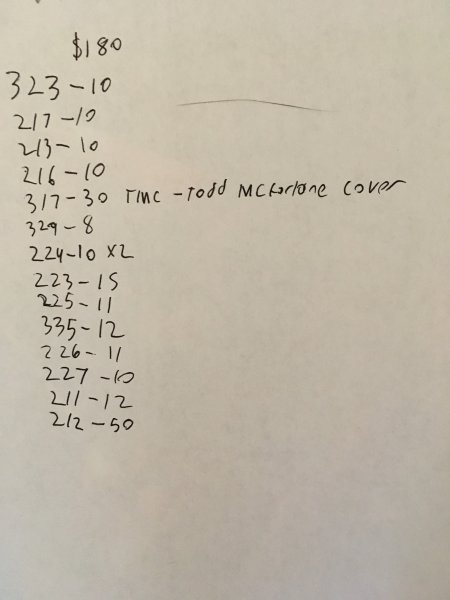 $180
323-10
217-10
213-10
216-10
317-30 TMC - Todd McFarlane cover
329-8
224-10 x2
223-15
225-11
335-12
226-11
227-10
211-12
212-50